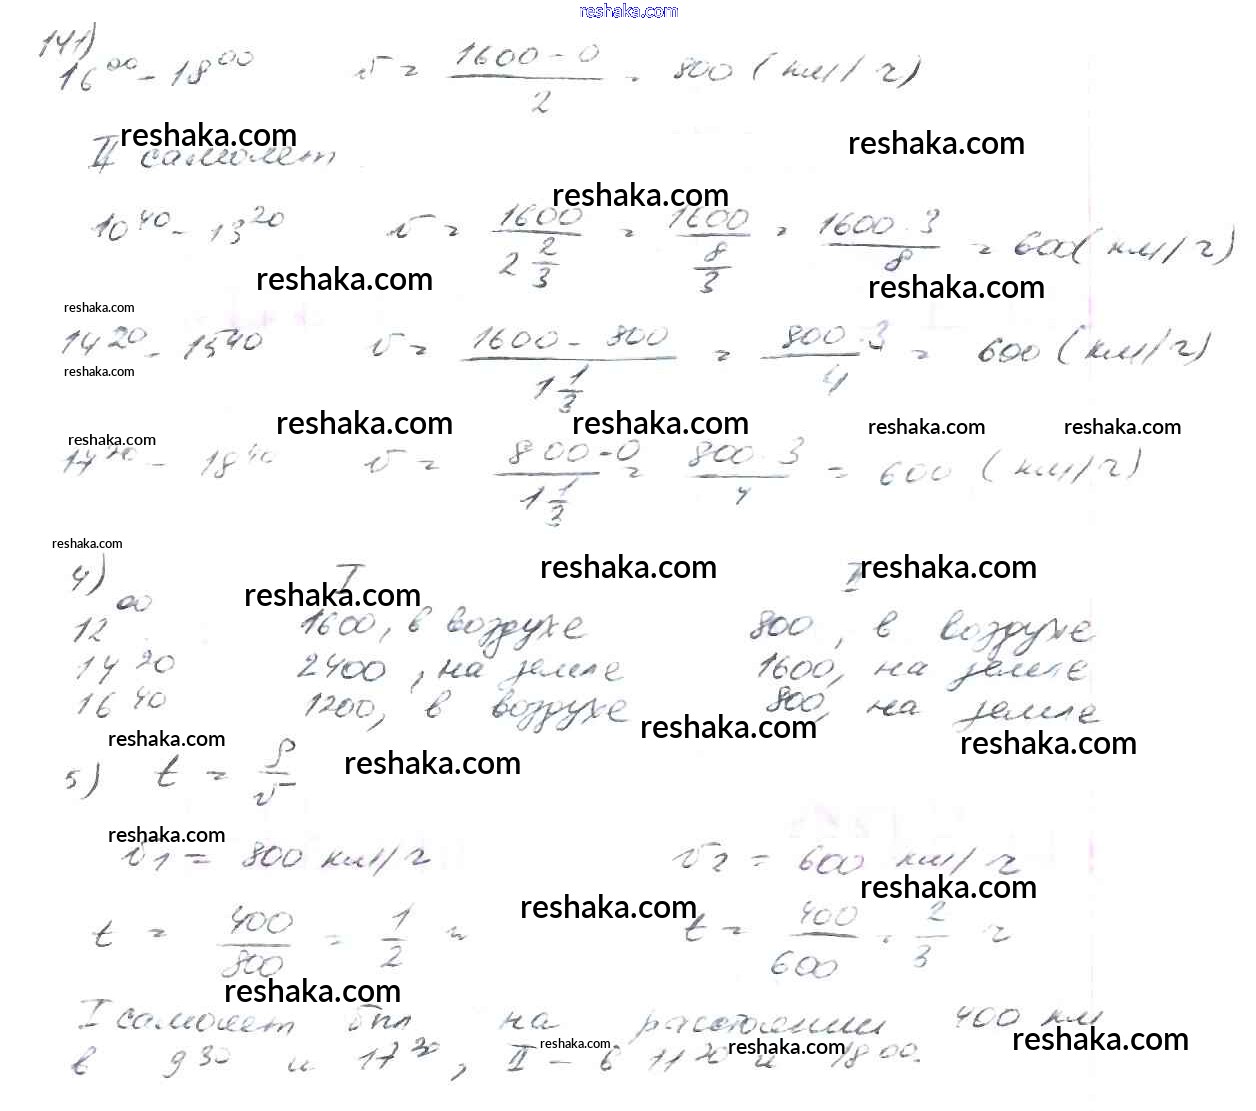 reshaka.com
141)
16⁰⁰ - 18⁰⁰ v = (1600 - 0)/2 = 800 (км/ч)
reshaka.com reshaka.com
II самолет
reshaka.com
10⁴⁰ - 13²⁰ v = 1600/(2 2/3) = 1600/(8/3) = (1600 · 3)/8 = 600 (км/ч)
reshaka.com reshaka.com
reshaka.com
14²⁰ - 15⁴⁰ v = (1600 - 800)/(1 1/3) = (800 · 3)/4 = 600 (км/ч)
reshaka.com
reshaka.com reshaka.com reshaka.com reshaka.com
reshaka.com
17²⁰ - 18⁴⁰ v = (800 - 0)/(1 1/3) = (800 · 3)/4 = 600 (км/ч)
reshaka.com
4) I II
reshaka.com reshaka.com reshaka.com
12⁰⁰ 1600, в воздухе 800, в воздухе
14²⁰ 2400, на земле 1600, на земле
16⁴⁰ 1200, в воздухе 800, на земле
reshaka.com reshaka.com reshaka.com
5) t = S/v
reshaka.com
reshaka.com
v₁ = 800 км/ч v₂ = 600 км/ч
reshaka.com
reshaka.com
t = 400/800 = 1/2 ч t = 400/600 = 2/3 ч
reshaka.com
I самолет был на расстоянии 400 км
reshaka.com reshaka.com reshaka.com
в 9³⁰ и 17³⁰, II - в 11²⁰ и 18⁰⁰.